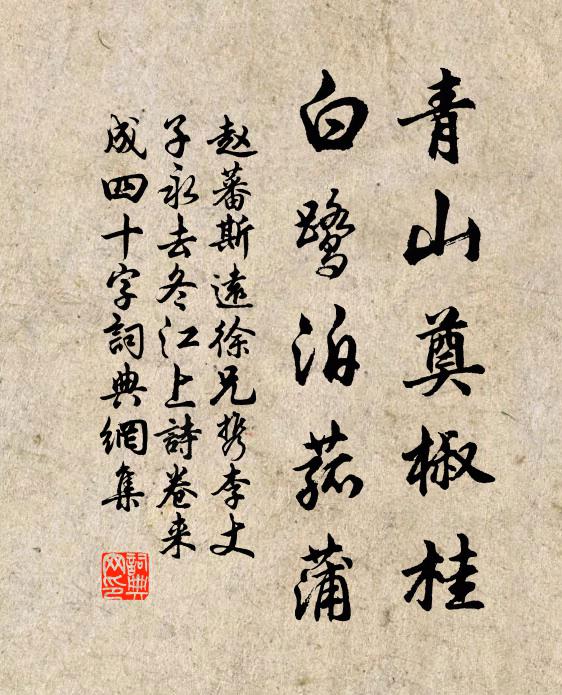 青山奠椒桂
白鹭泊菰蒲
赵蕃斯遠徐兄携李丈
子永去冬江上詩卷来
成四十字詞典網集
詞典网印